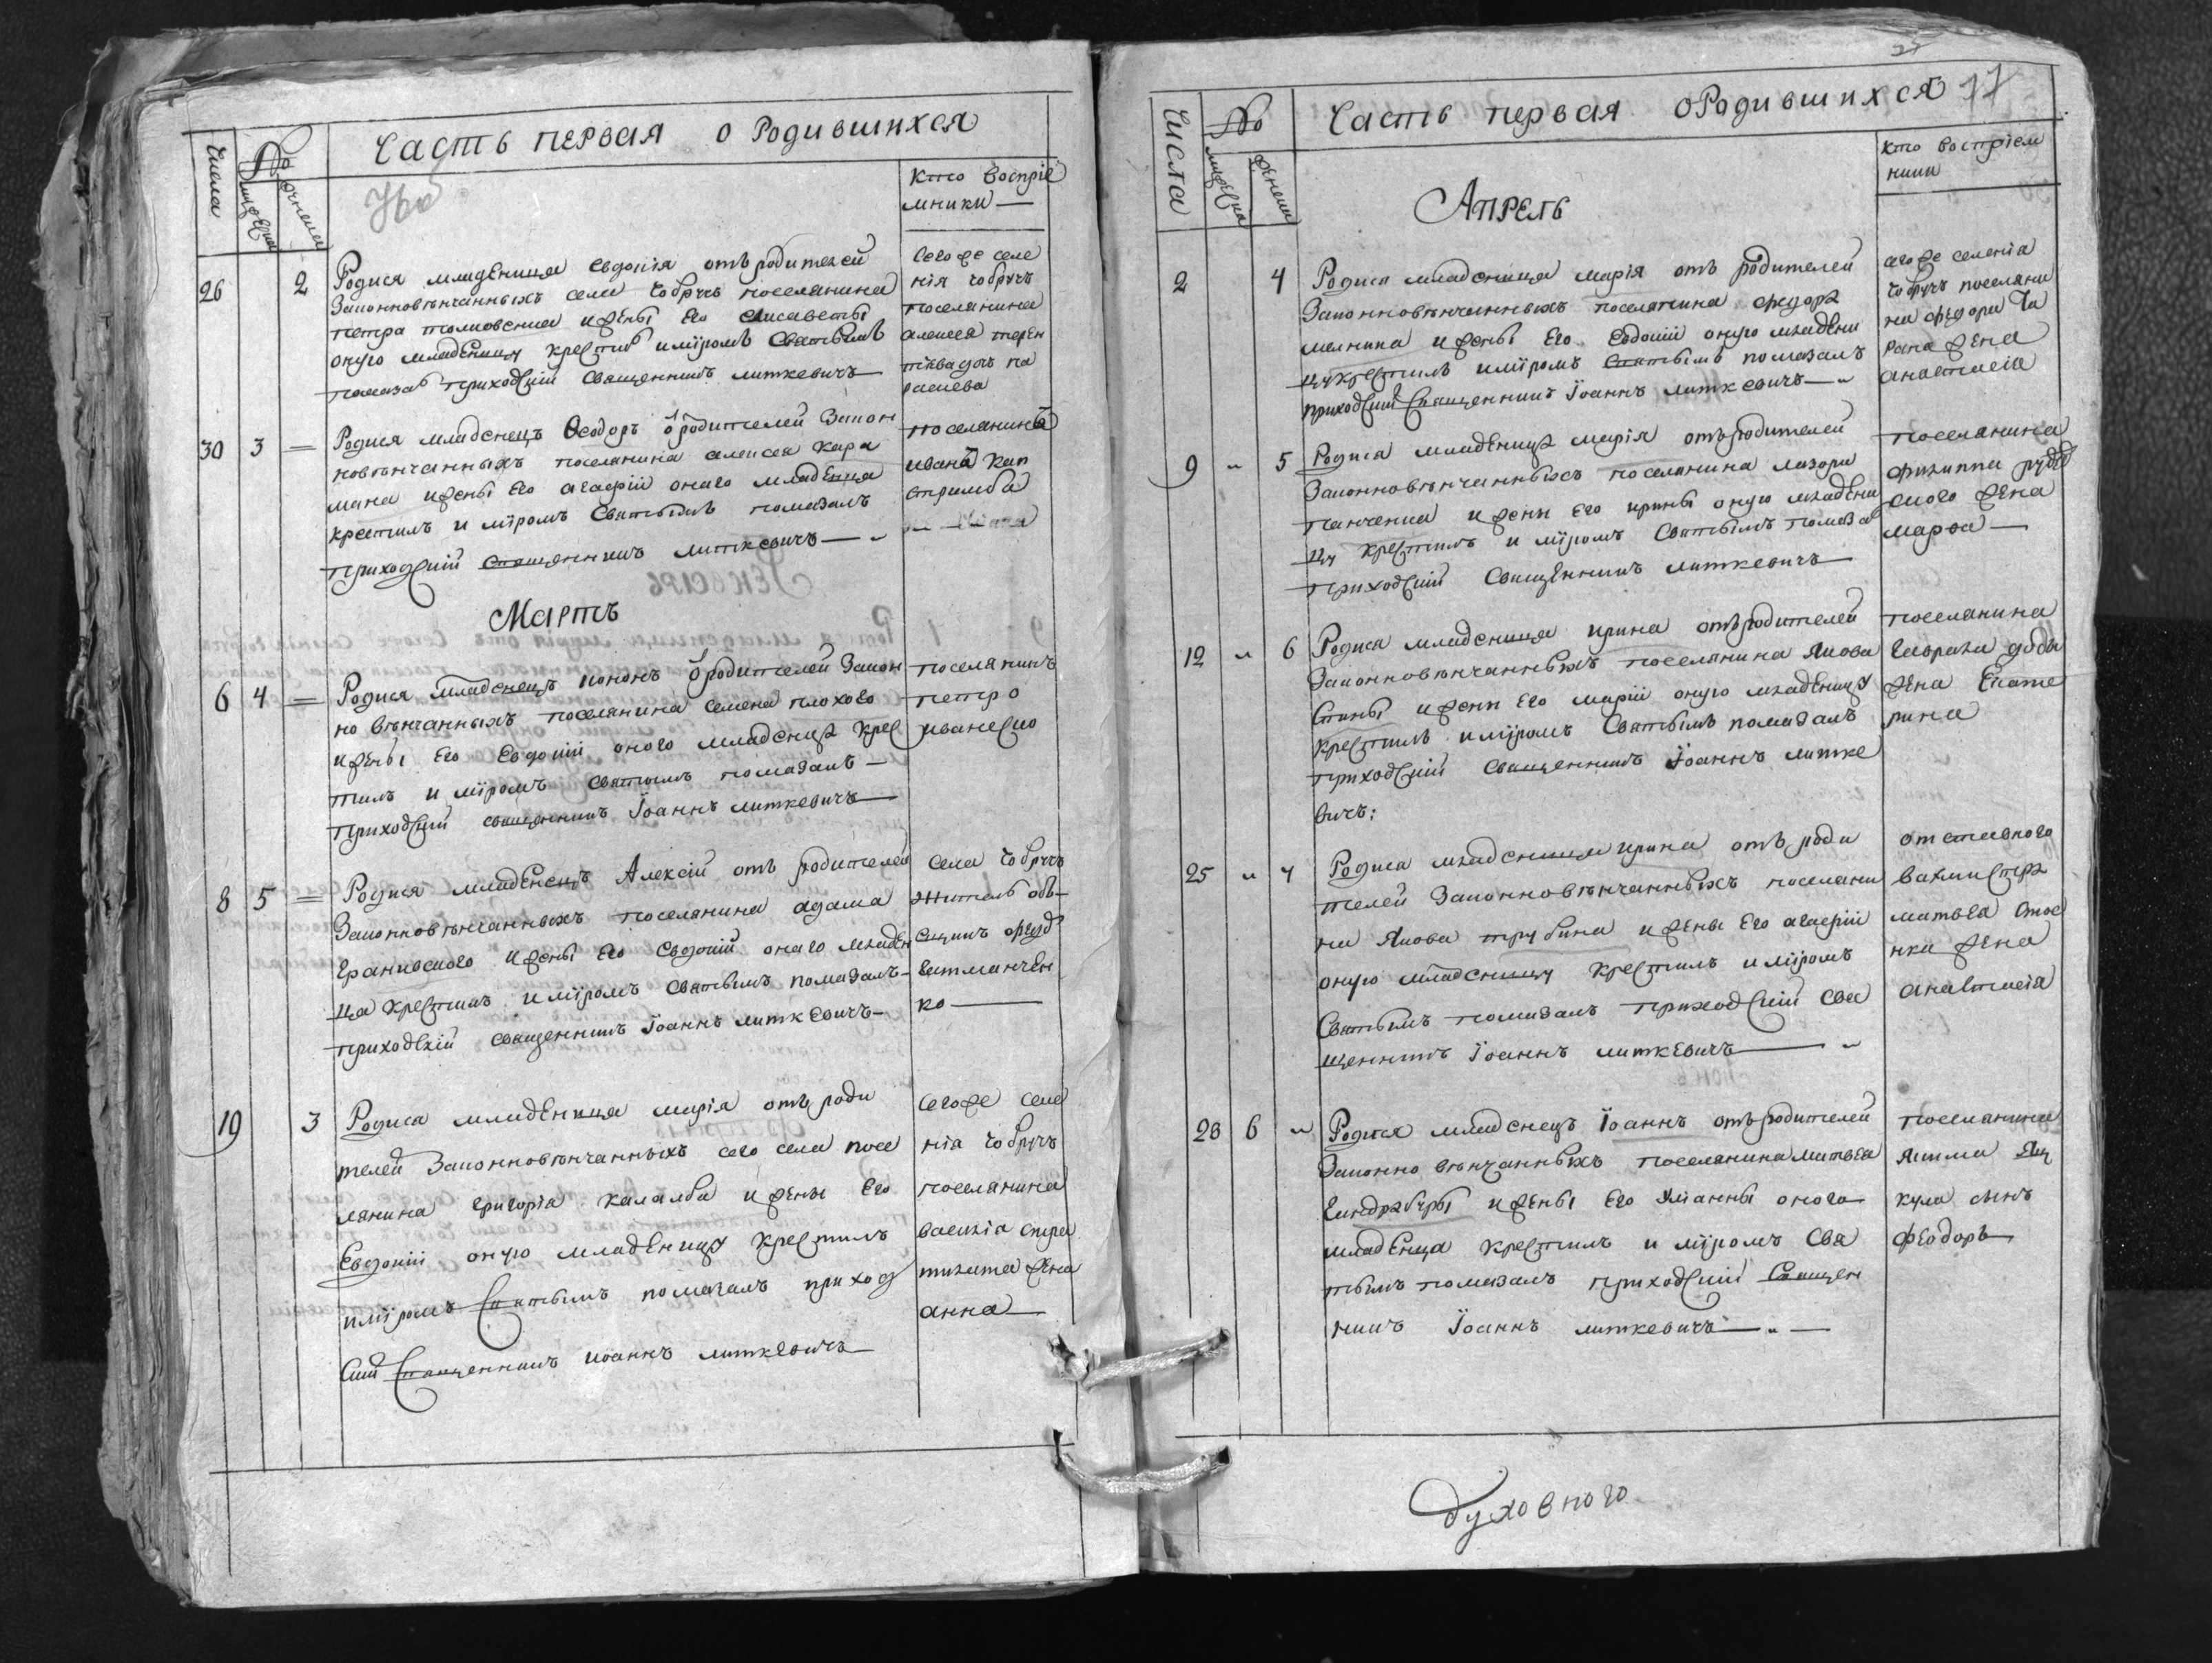 Часть первая о Родившихся
Числа
№
мужеска
женска
Кто воспріе
мники —
26 2 Родися младеница Евдокія отъ родителей
Законновѣнчанныхъ села Чобручъ поселянина
петра и жены Его Елисаветы
оную младеницу крестилъ и мѵромъ Святымъ
помаза приходскій Священникъ литкевичъ —
Сего же селе
нія Чобручъ
поселянина
алексея
30 3 — Родися младенецъ Ѳеодоръ ѿ родителей Закон
новѣнчанныхъ поселянина алексея Кара
мана и жены Его агафіи онаго младенца
крестилъ и мѵромъ Святымъ помазалъ
приходскій Священникъ литкевичъ —
поселянина
ивана Кап
стримба
Мартъ
6 4 — Родися младенецъ кононъ ѿ родителей Закон
но вѣнчанныхъ поселянина семена плохого
и жены Его Евдокіи оного младенца крес
тилъ и мѵромъ святымъ помазалъ —
приходскій священникъ Іоаннъ литкевичъ —
поселянинъ
петро
иваненко
8 5 — Родися младенецъ Алексій отъ родителей
Законновѣнчанныхъ поселянина адама
Ераневского и жены Его Евдокіи онаго младен
ца крестилъ и мѵромъ святымъ помазалъ —
приходскій священникъ Іоаннъ литкевичъ —
села Чобручъ
житель
Гетманчен
ко —
19 3 Родися младеница марія отъ роди
телей Законновѣнчанныхъ сего села посе
лянина григорія калалба и жены Его
Евдокіи оную младеницу крестилъ
и мѵромъ Святымъ помазалъ приход
скій Священникъ иоаннъ литкевичъ
сего же селе
нія Чобручъ
поселянина
василіа
жена
анна —
Часть первая о Родившихся 17
Числа
№
мужеска
женска
Кто воспріем
ники
Апрель
2 4 Родися младеница марія отъ родителей
Законновѣнчанныхъ поселянина федора
мелника и жены Его Евдокіи оную младени
цу крестилъ и мѵромъ святымъ помазалъ
приходскій Священникъ Іоаннъ литкевичъ —
сего же селенія
Чобручъ поселяни
на федора
жена
анастасіа
9 „ 5 Родися младеница марія отъ родителей
Законновѣнчанныхъ поселянина лазора
панченка и жены Его ирины оную младени
цу крестилъ и мѵромъ Святымъ помаза
приходскій Священникъ литкевичъ —
поселянина
филиппа руд
ского жена
марѳа —
12 „ 6 Родися младеница ирина отъ родителей
Законновѣнчанныхъ поселянина Якова
и жены Его маріи оную младеницу
крестилъ и мѵромъ Святымъ помазалъ
приходскій священникъ Іоаннъ литке
вичъ:
поселянина
гаврила
жена Екате
рина
25 „ 7 Родися младеница ирина отъ роди
телей Законновѣнчанныхъ поселяни
на Якова трубина и жены Его агафіи
оную младеницу крестилъ и мѵромъ
Святымъ помазалъ приходскій свя
щенникъ Іоаннъ литкевичъ —
отставного
вахмистра
матвея стое
нка жена
анастасіа
28 6 „ Родися младенецъ Іоаннъ отъ родителей
Законно вѣнчанныхъ поселянина матвея
и жены Его оного
младенца крестилъ и мѵромъ Свя
тымъ помазалъ приходскій Священ
никъ Іоаннъ литкевичъ —
поселянина
Якима Яц
кула сынъ
феодоръ —
духовного